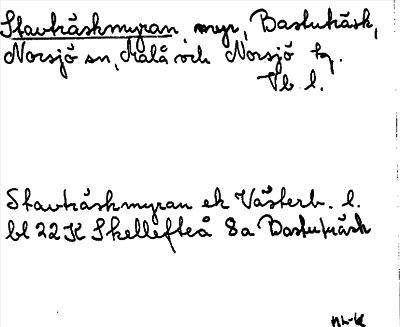 Stavträskmyran, myr, Bastuträsk,
Norsjö sn, Malå och Norsjö tg.
Vb l.
Stavträskmyran ek Västerb. l.
bl 22 K Skellefteå 8a Bastuträsk